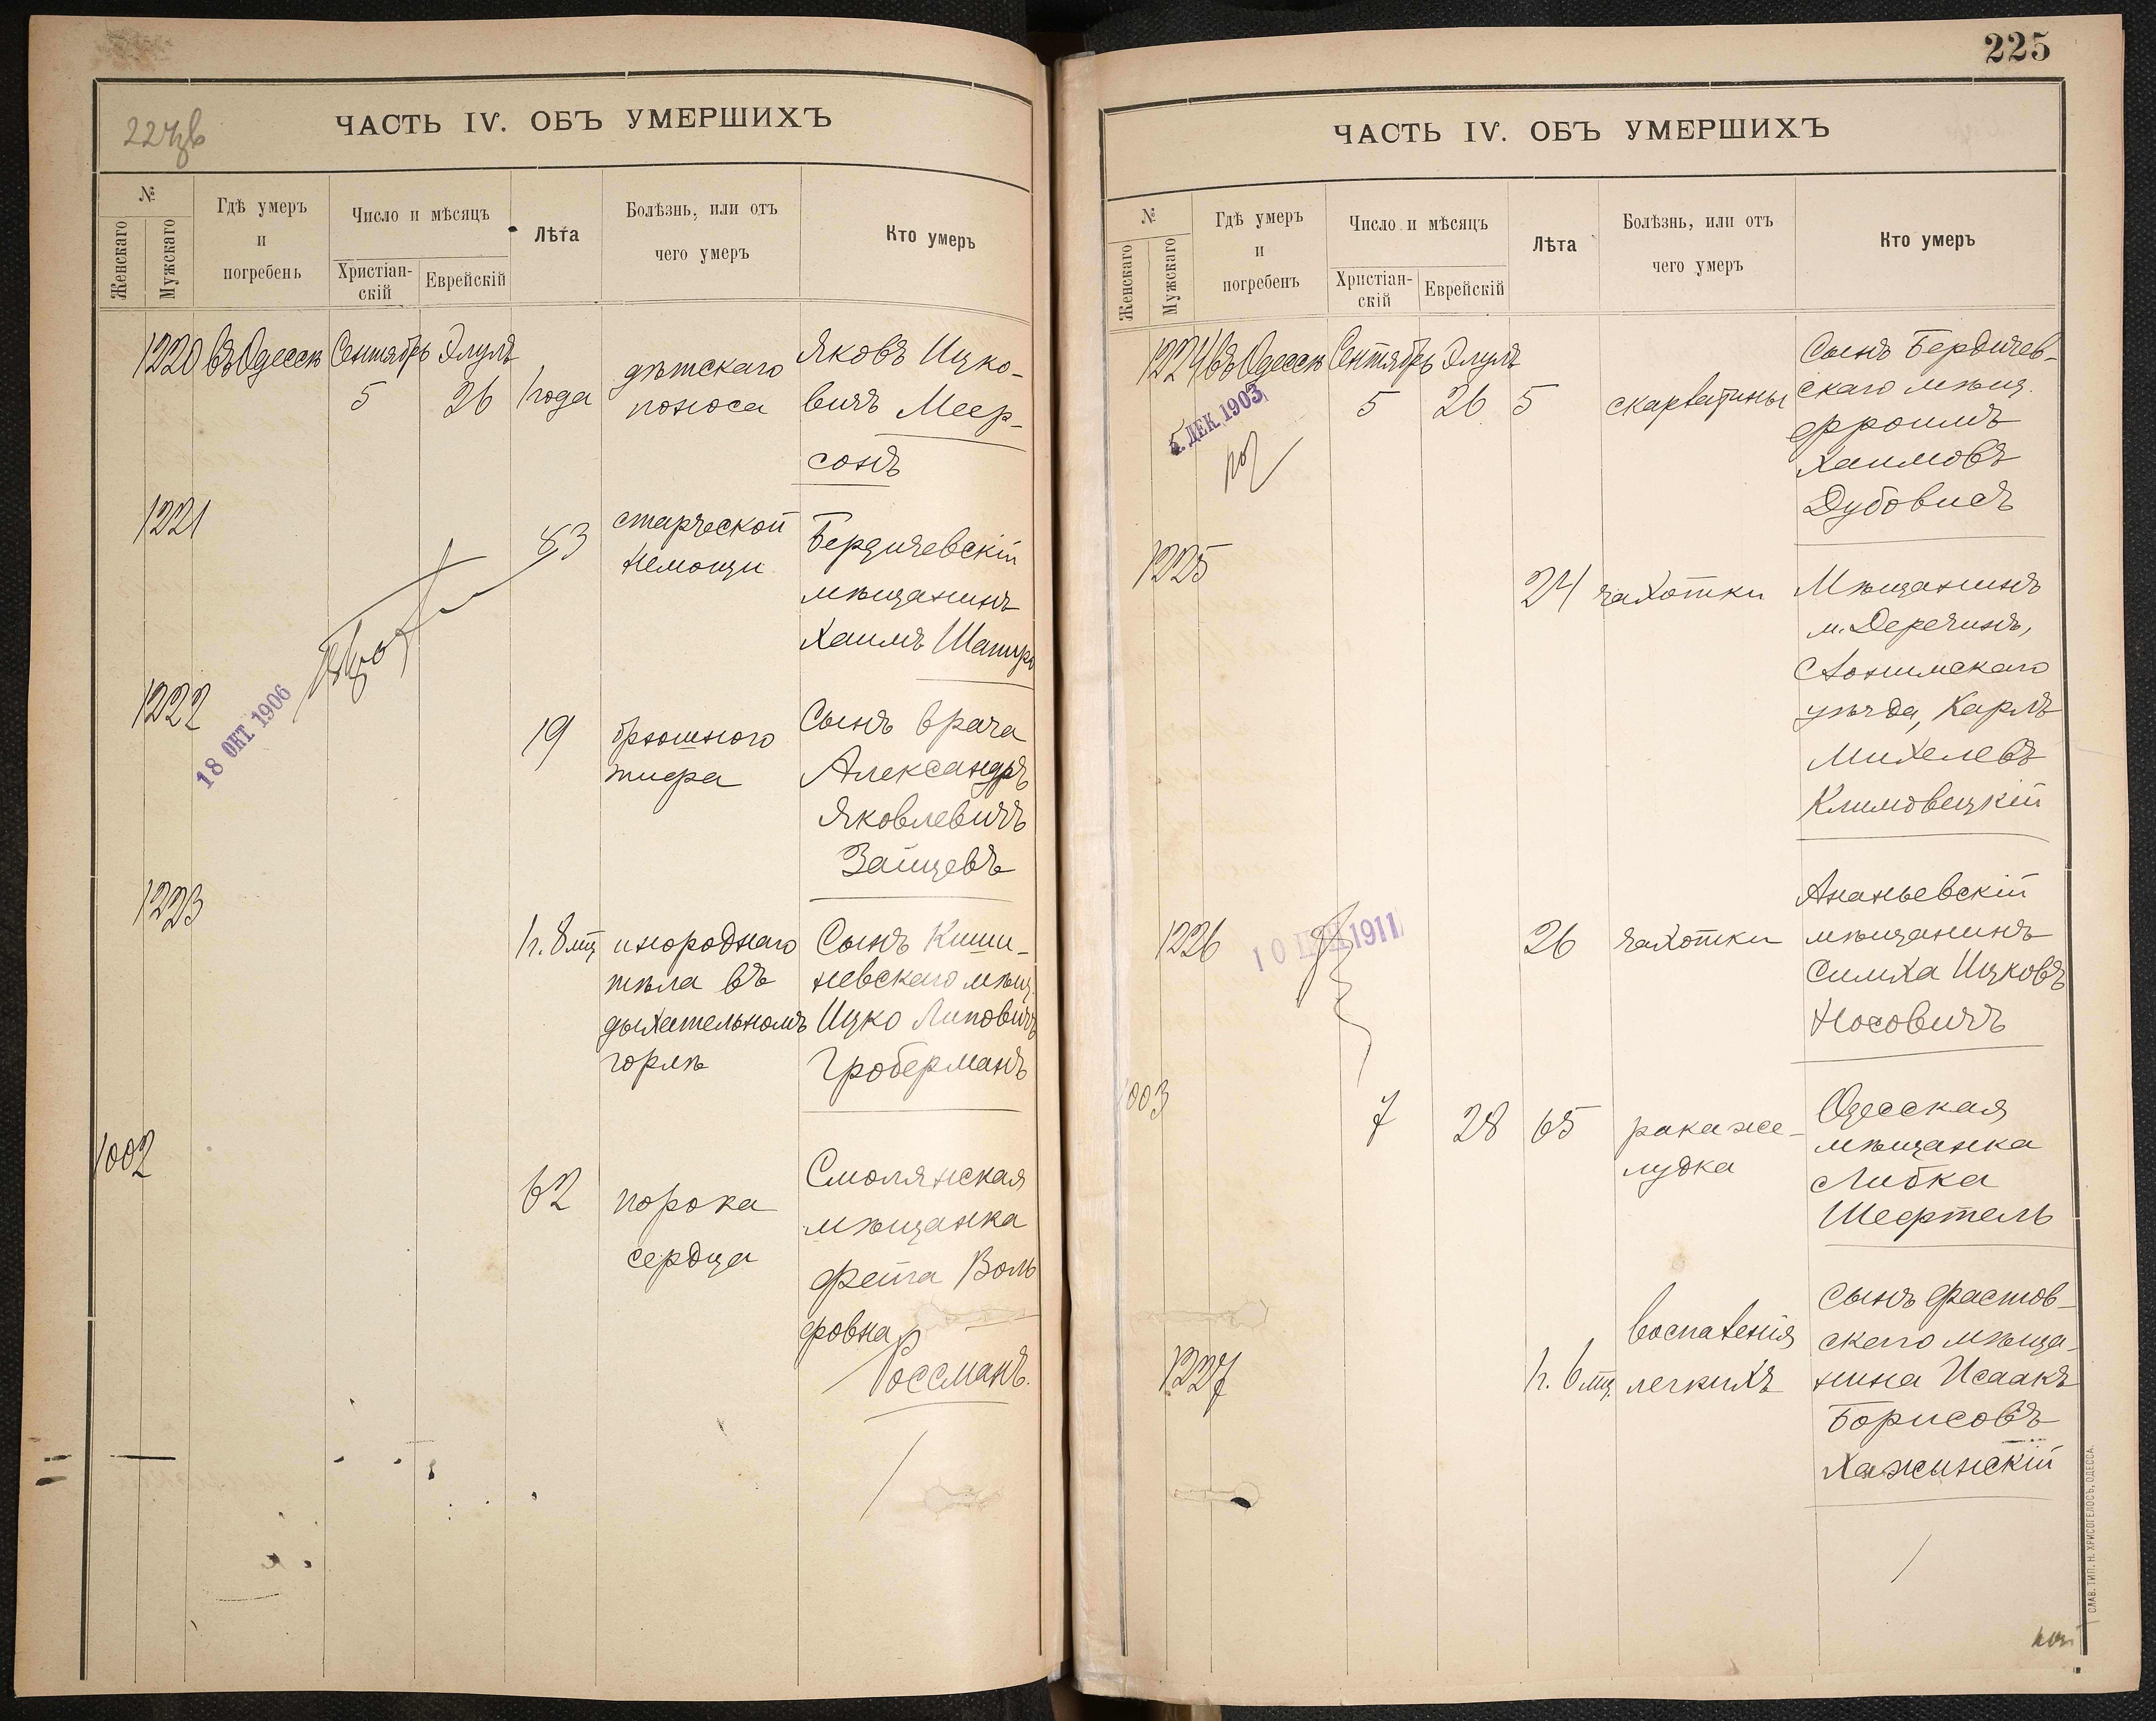 224об
ЧАСТЬ IV. ОБЪ УМЕРШИХЪ
№
Женскаго
Мужскаго
Гдѣ умеръ
и
погребенъ
Число и мѣсяцъ
Христіан-
скій
Еврейскій
Лѣта
Болѣзнь, или отъ
чего умеръ
Кто умеръ
1220 въ Одессѣ Сентябрь Элулъ
5 26 1 года
дѣтскаго
поноса
Яковъ Ицко-
вичъ Меер-
сонъ
1221
83
старческой
немощи
Бердичевскій
мѣщанинъ
Хаимъ Шапиро
1222
18 ОКТ 1906
19
брюшного
тифа
Сынъ врача
Александръ
Яковлевичъ
Зайцевъ
1223
1 г. 8 мц
инороднаго
тѣла въ
дыхательномъ
горлѣ
Сынъ Киши-
невскаго мѣщ.
Ицко Липовичъ
Гроберманъ
1002
62
порока
сердца
Смолянская
мѣщанка
Фейга Воль
фовна
Россманъ.
225
ЧАСТЬ IV. ОБЪ УМЕРШИХЪ
№
Женскаго
Мужскаго
Гдѣ умеръ
и
погребенъ
Число и мѣсяцъ
Христіан-
скій
Еврейскій
Лѣта
Болѣзнь, или отъ
чего умеръ
Кто умеръ
1224 въ Одессѣ Сентябрь Элулъ
5 26 5
5. ДЕК 1903
скарлатины
Сынъ Бердичев-
скаго мѣщ.
Фроимъ
Хаимовъ
Дубовисъ
1225
24 чахотки
Мѣщанинъ
м. Деречинъ,
Слонимскаго
уѣзда, Карлъ
Михелевъ
Климовецкій
1226
10 1911
26 чахотки
Ананьевскій
мѣщанинъ
Симха Ицковъ
Носовичъ
1003
7 28 65
рака же-
лудка
Одесская
мѣщанка
Либка
Шефтель
1227
1 г. 6 мц.
воспаленія
легкихъ
Сынъ Фастов-
скаго мѣща-
нина Исаакъ
Борисовъ
Хажинскій
СЛАВ. ТИП. Н. ХРИСОГЕЛОСЪ, ОДЕССА.